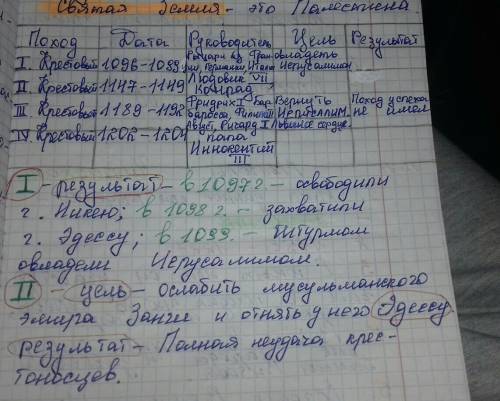 Святая Земля - это Палестена
Поход Дата Руководитель Цель Результат
I. Крестовый 1096-1099 Рыцари из Фран овладеть
ции, Германии, Итали Иерусалимом
II Крестовый 1147-1149 Людовик VII,
Конрад,
III Крестовый 1189-1192 Фридрих I Бар Вернуть Поход успеха
баросса, Филипп II Иерусалим. не имел
Август, Ричард I Львиное сердце.
IV Крестовый 1202-1204 папа
Иннокентий
III
I - результат - в 1097 г - освободили
г. Никею; в 1098 г. - захватили
г. Эдессу; в 1099. - Штурмом
овладели Иерусалимом.
II - цель - ослабить мусульманского
эмира Занги и отнять у него Эдессу
результат - Полная неудача крес-
тоносцев.